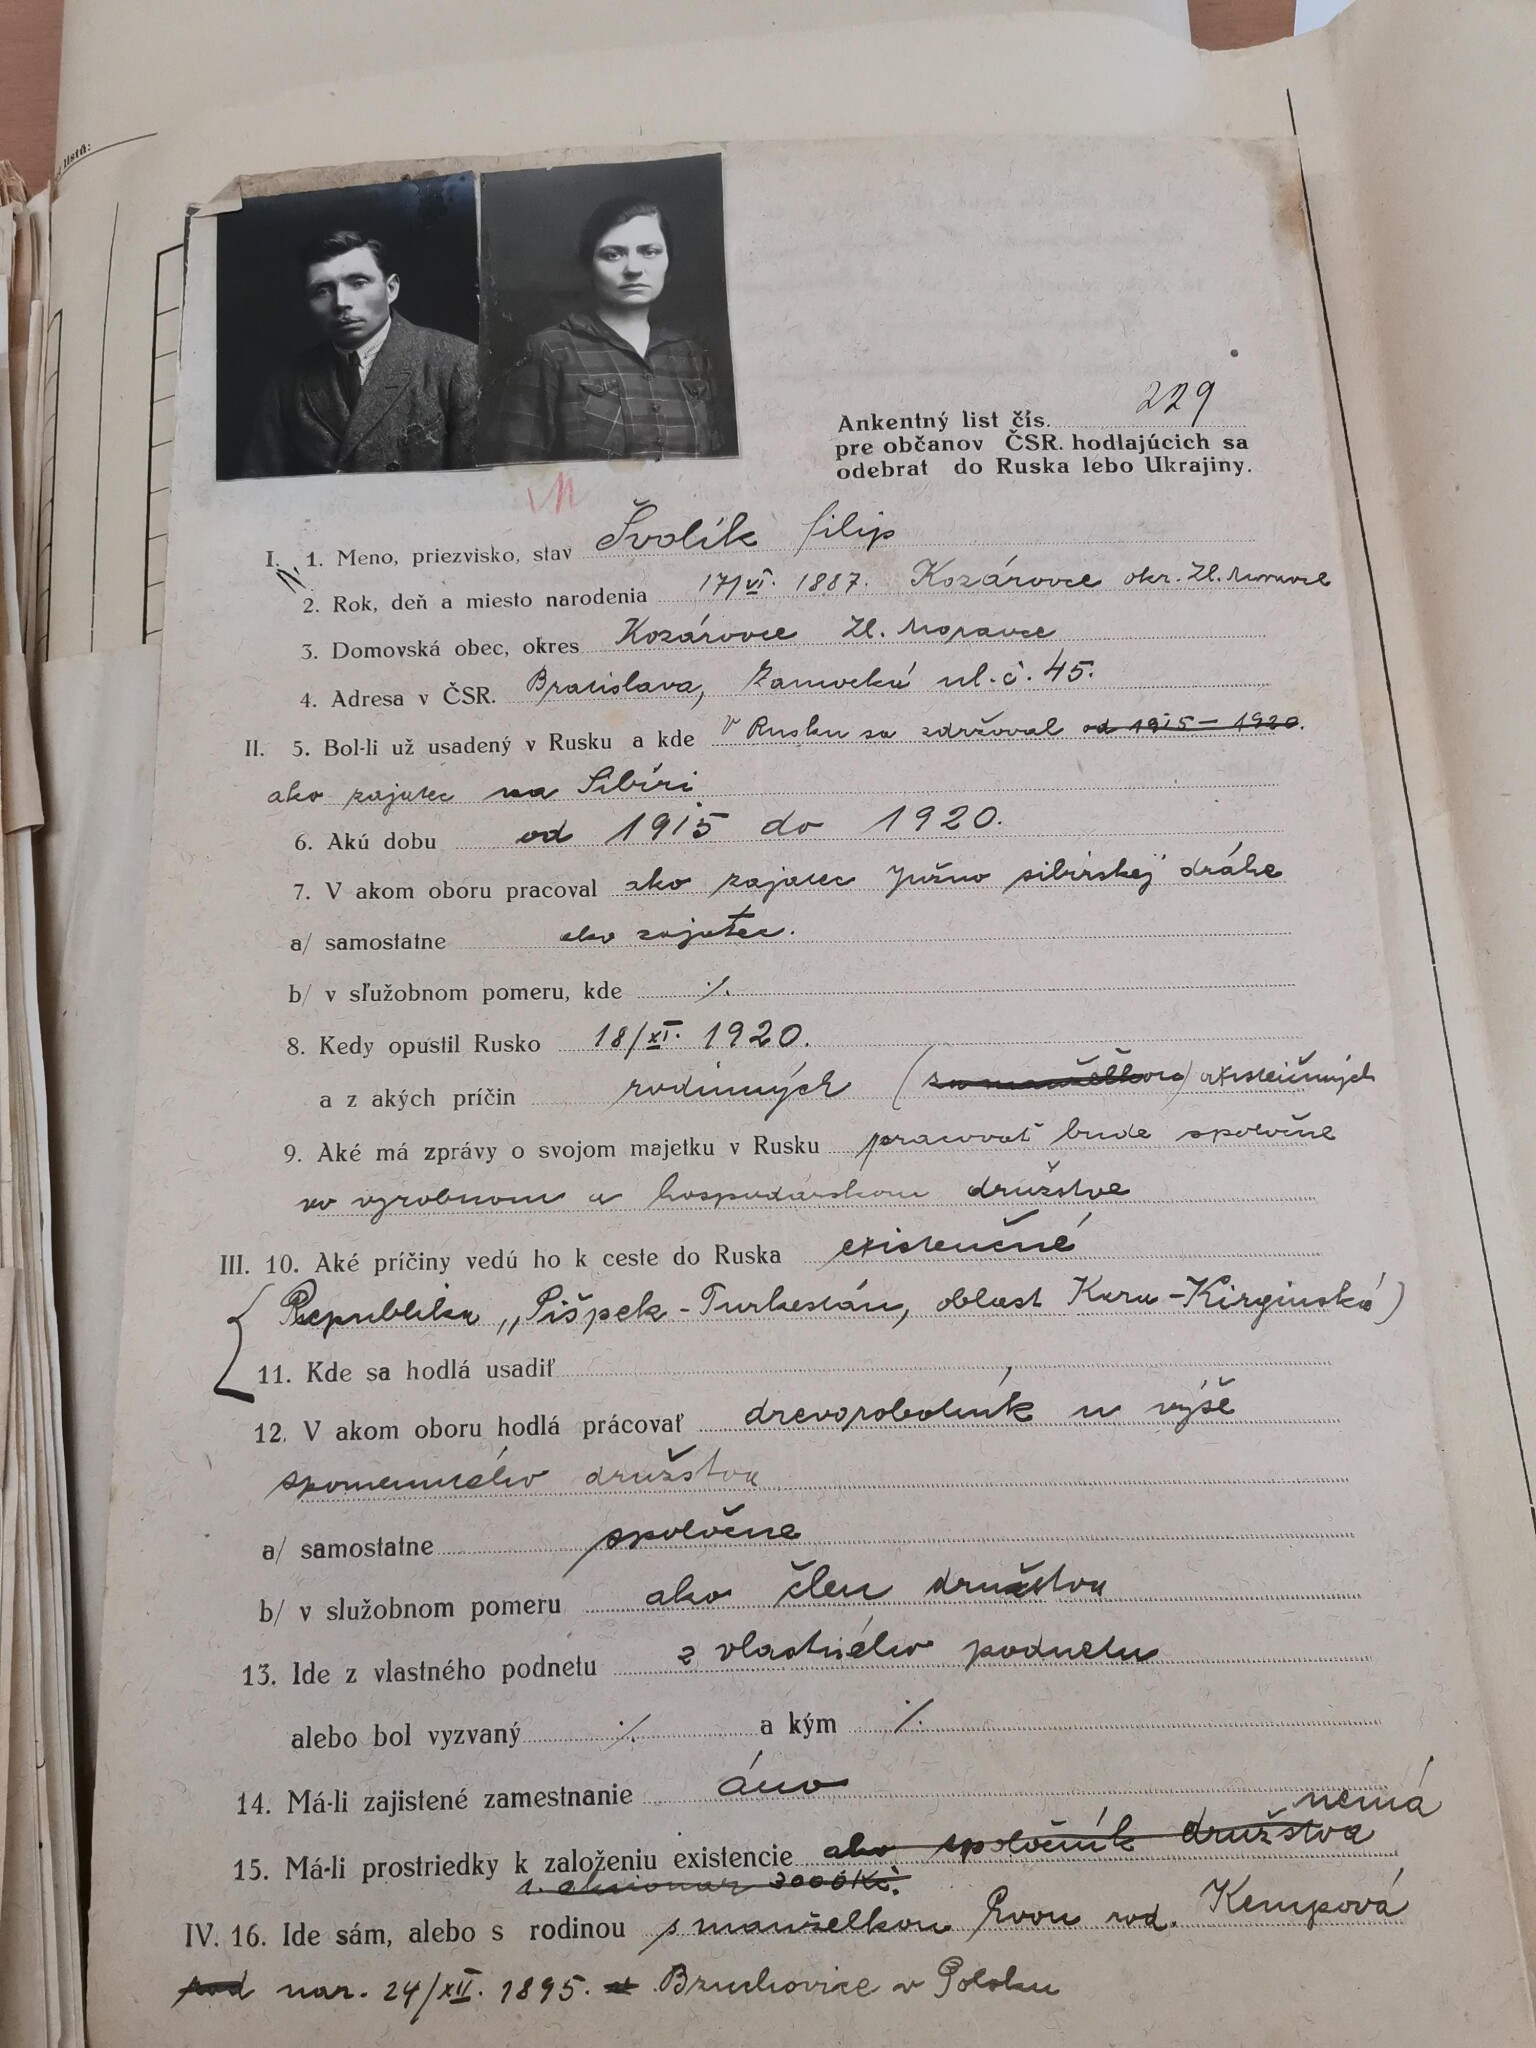 listů:
229
Ankentný list čís.
pre občanov ČSR. hodlajúcich sa
odebrat do Ruska lebo Ukrajiny.
I. 1. Meno, priezvisko, stav Švolík Filip
2. Rok, deň a miesto narodenia 17/VI. 1887. Kozárovce okr. Zl. Moravce
3. Domovská obec, okres Kozárovce Zl. Moravce
4. Adresa v ČSR. Bratislava, Zámocká ul. č. 45.
II. 5. Bol-li už usadený v Rusku a kde V Rusku sa zdržoval od 1915 – 1920.
ako zajatec na Sibíri
6. Akú dobu od 1915 do 1920.
7. V akom oboru pracoval ako zajatec južno sibirskej dráhe
a/ samostatne ako zajatec.
b/ v sľužobnom pomeru, kde ·/.
8. Kedy opustil Rusko 18/XI. 1920.
a z akých príčin rodinných (za manželkou) existenčných
9. Aké má zprávy o svojom majetku v Rusku pracovat bude spoločne
vo vyrobnom a hospodárskom družstve
III. 10. Aké príčiny vedú ho k ceste do Ruska existenčné
Republika „Pišpek - Turkestán, oblast Kara - Kirginská)
11. Kde sa hodlá usadiť
12. V akom oboru hodlá prácovať drevorobotník u výše
spomenutého družstva
a/ samostatne spoločne
b/ v služobnom pomeru ako člen družstva
13. Ide z vlastného podnetu z vlastného podnetu
alebo bol vyzvaný ·/. a kým ·/.
14. Má-li zajistené zamestnanie áno
nemá
15. Má-li prostriedky k založeniu existencie ako spoločník družstva
3000 Kč.
IV. 16. Ide sám, alebo s rodinou s manželkou Evou rod. Kempová
rod nar. 24/XII. 1895. Bzuchovice v Polsku